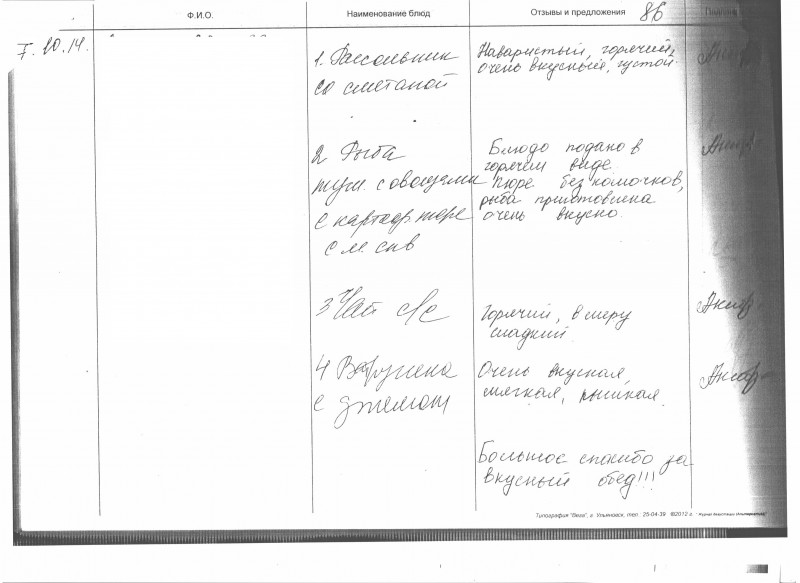 Ф.И.О.
Наименование блюд
Отзывы и предложения
86
7.10.14.
1. Рассольник
со сметаной
Наваристый, горячий,
очень вкусный, густой.
2 Рыба
туш. с овощами
с картоф. пюре
с м. слив
Блюдо подано в
горячем виде.
Пюре без комочков,
рыба приготовлена
очень вкусно.
3 Чай с/с
Горячий, в меру
сладкий.
4 Ватрушка
с джемом
Очень вкусная,
мягкая, пышная.
Большое спасибо за
вкусный обед!!!
Типография "Вега", г. Ульяновск, тел. 25-04-39 ©2012 г.